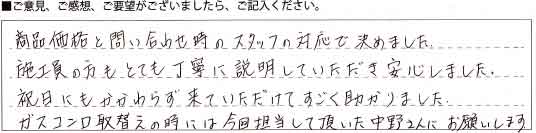 ■ご意見、ご感想、ご要望がございましたら、ご記入ください。
商品価格と問い合わせ時のスタッフの対応で決めました。
施工員の方もとても丁寧に説明していただき安心しました。
祝日にもかかわらず来ていただけてすごく助かりました。
ガスコンロ取替えの時には今回担当して頂いた中野さんにお願いします